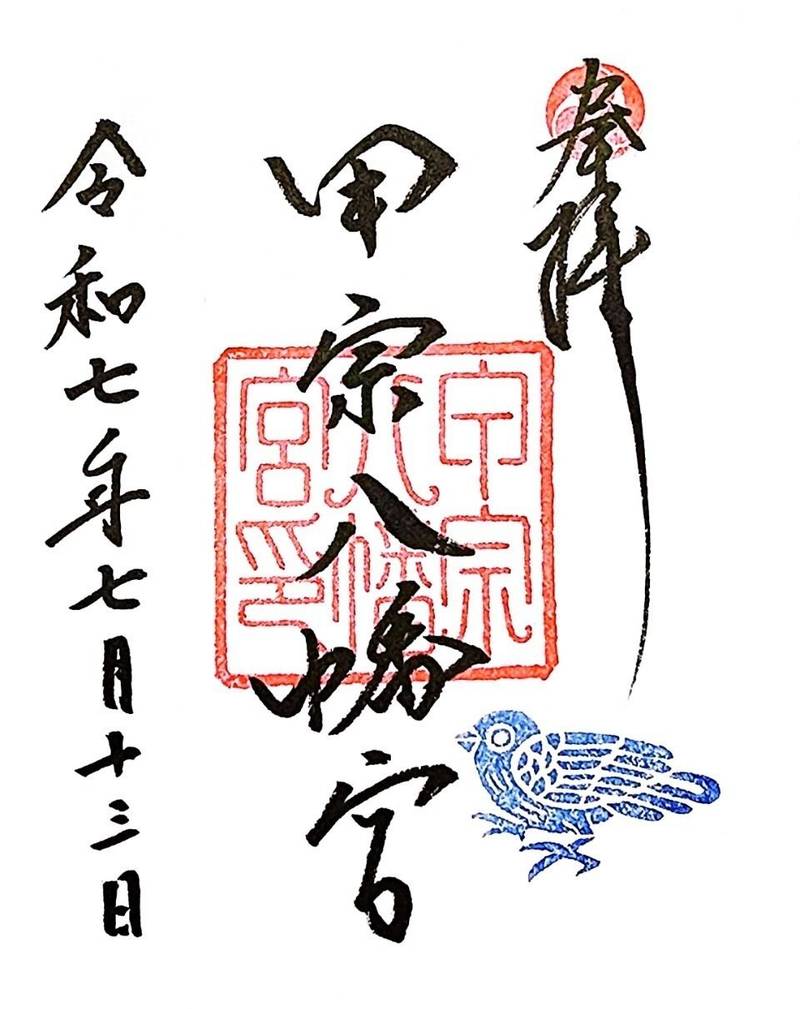 奉拝
甲宗八幡宮
甲宗
八幡
宮印
令和七年七月十三日